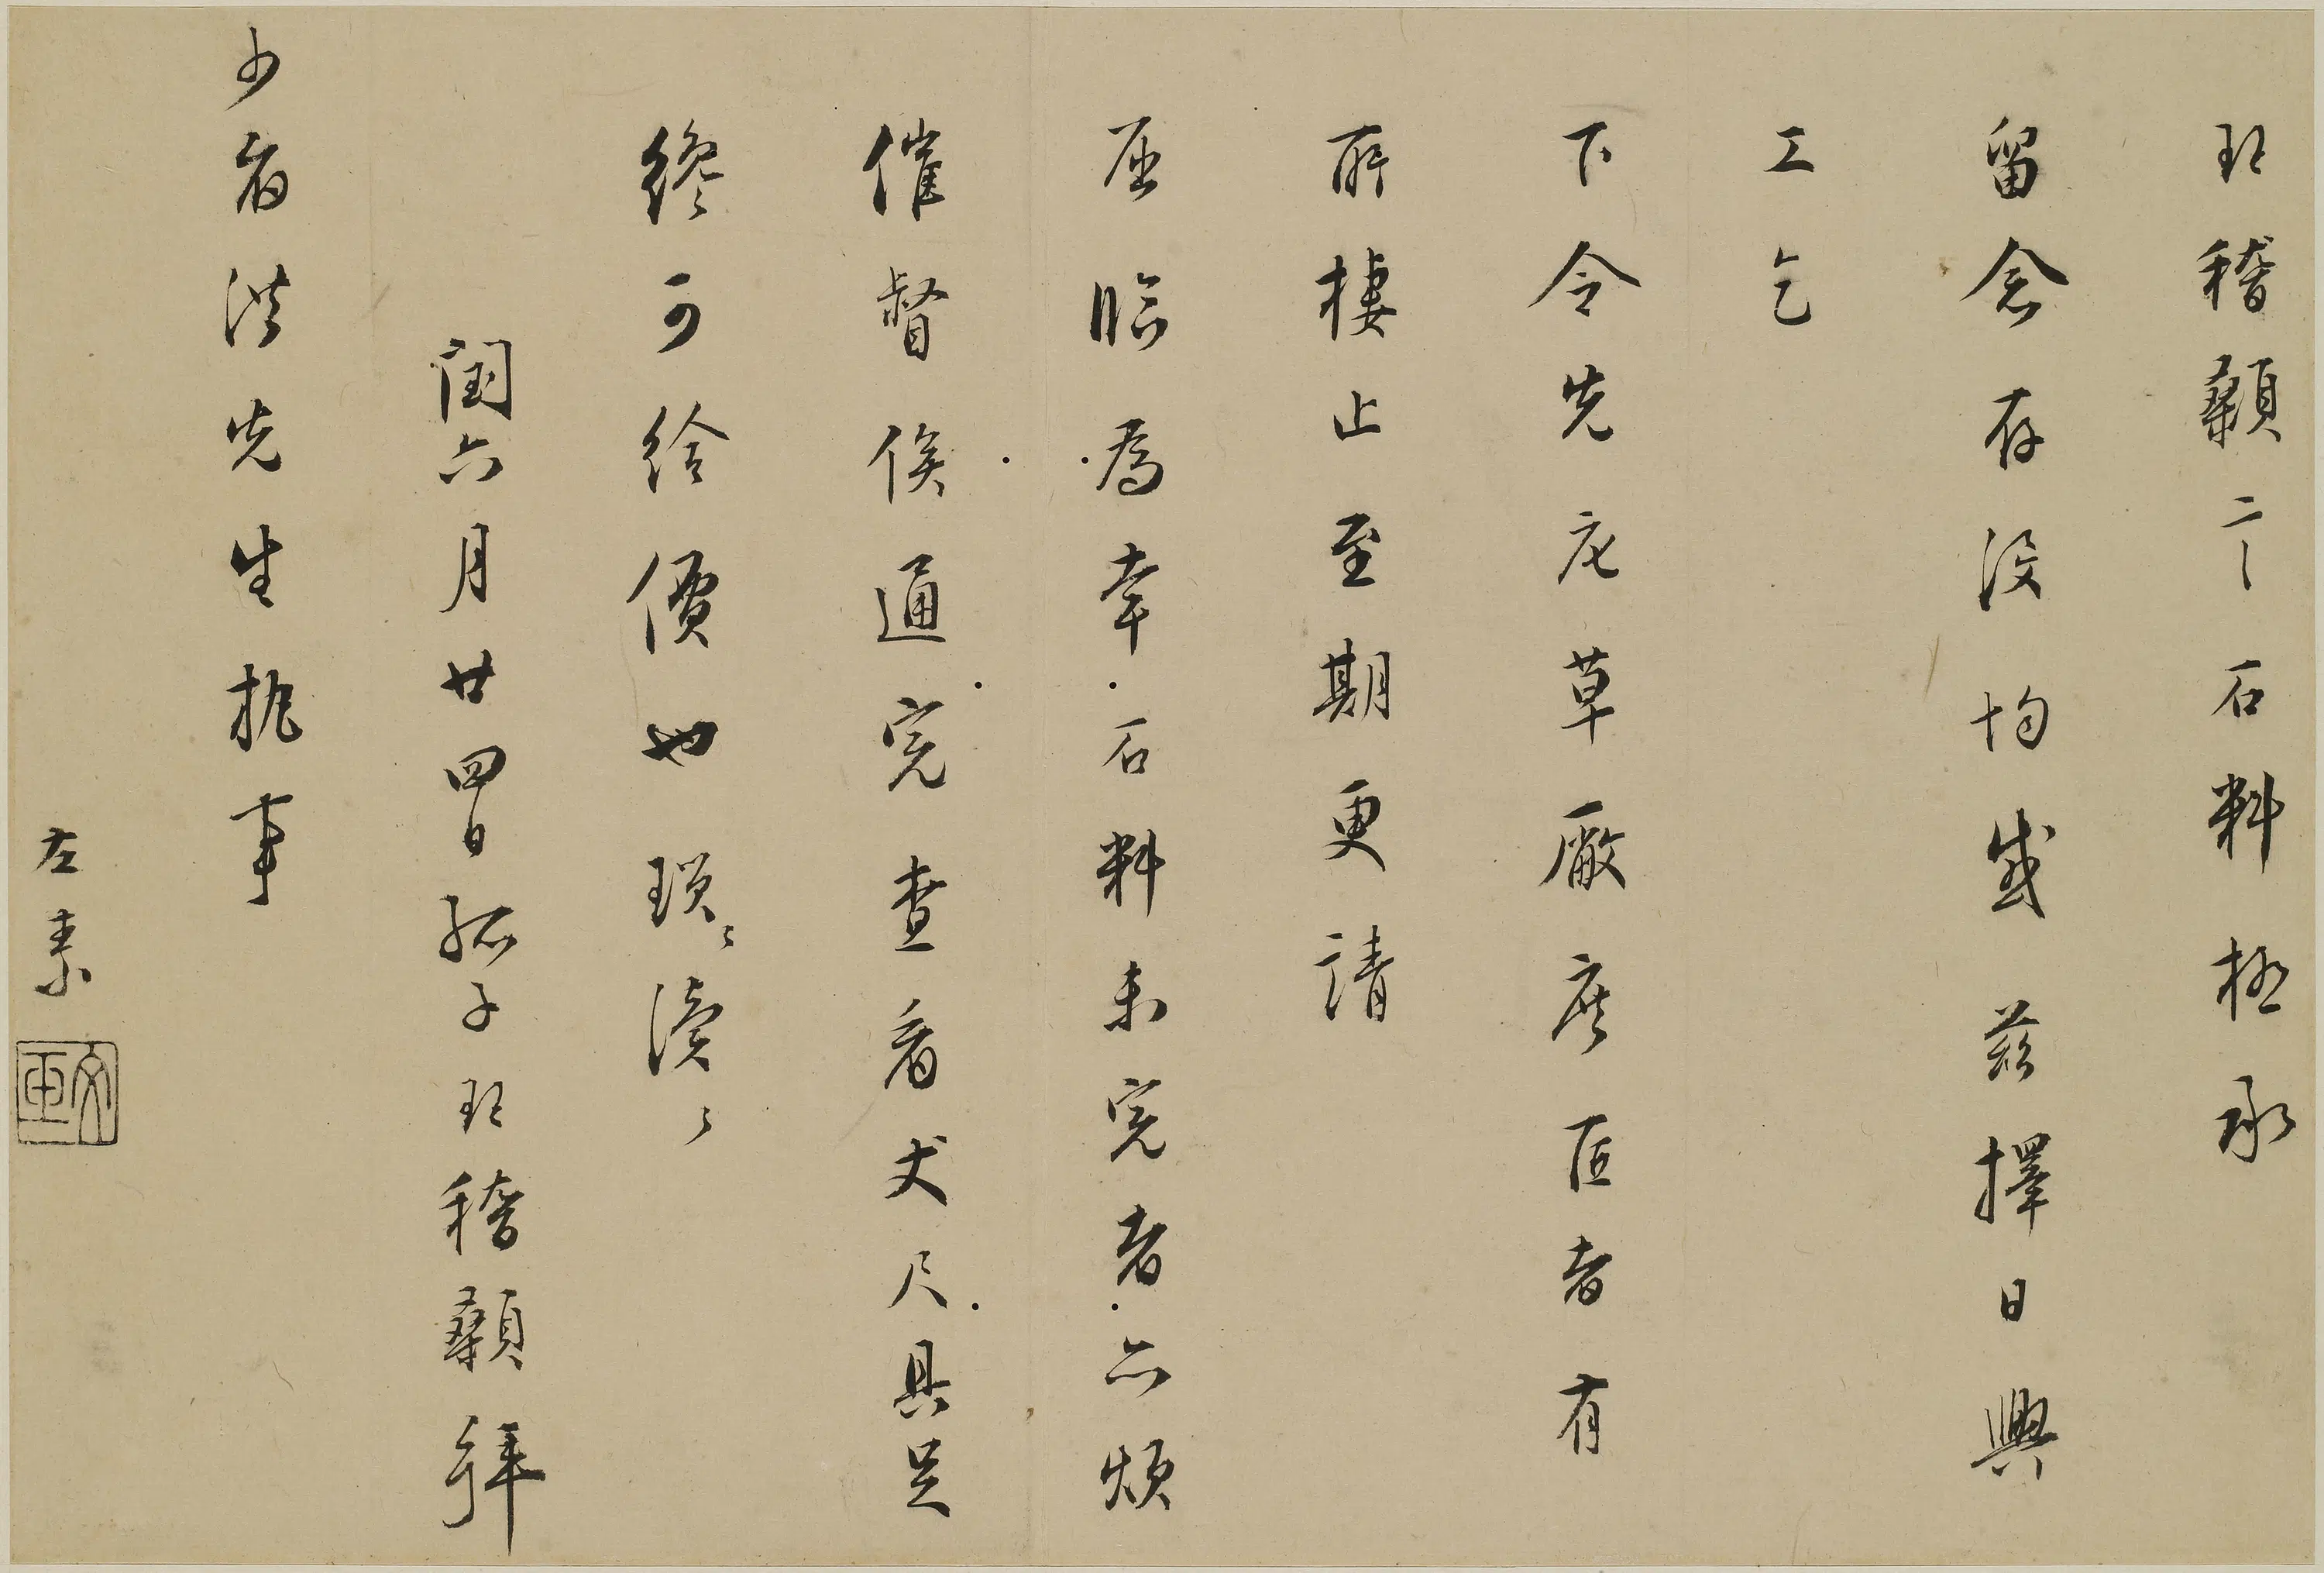 珵稽顙二丨石料極承
留念存沒均感茲擇日興
工乞
下令先庀草廠庶匠者有
所棲止至期更請
屈臨為幸石料未完者亦煩
催督俟通完查看丈尺具足
纔可給價也瑣瑣瀆瀆
閏六月廿四日孤子珵稽顙拜
少眉洪先生執事
左素